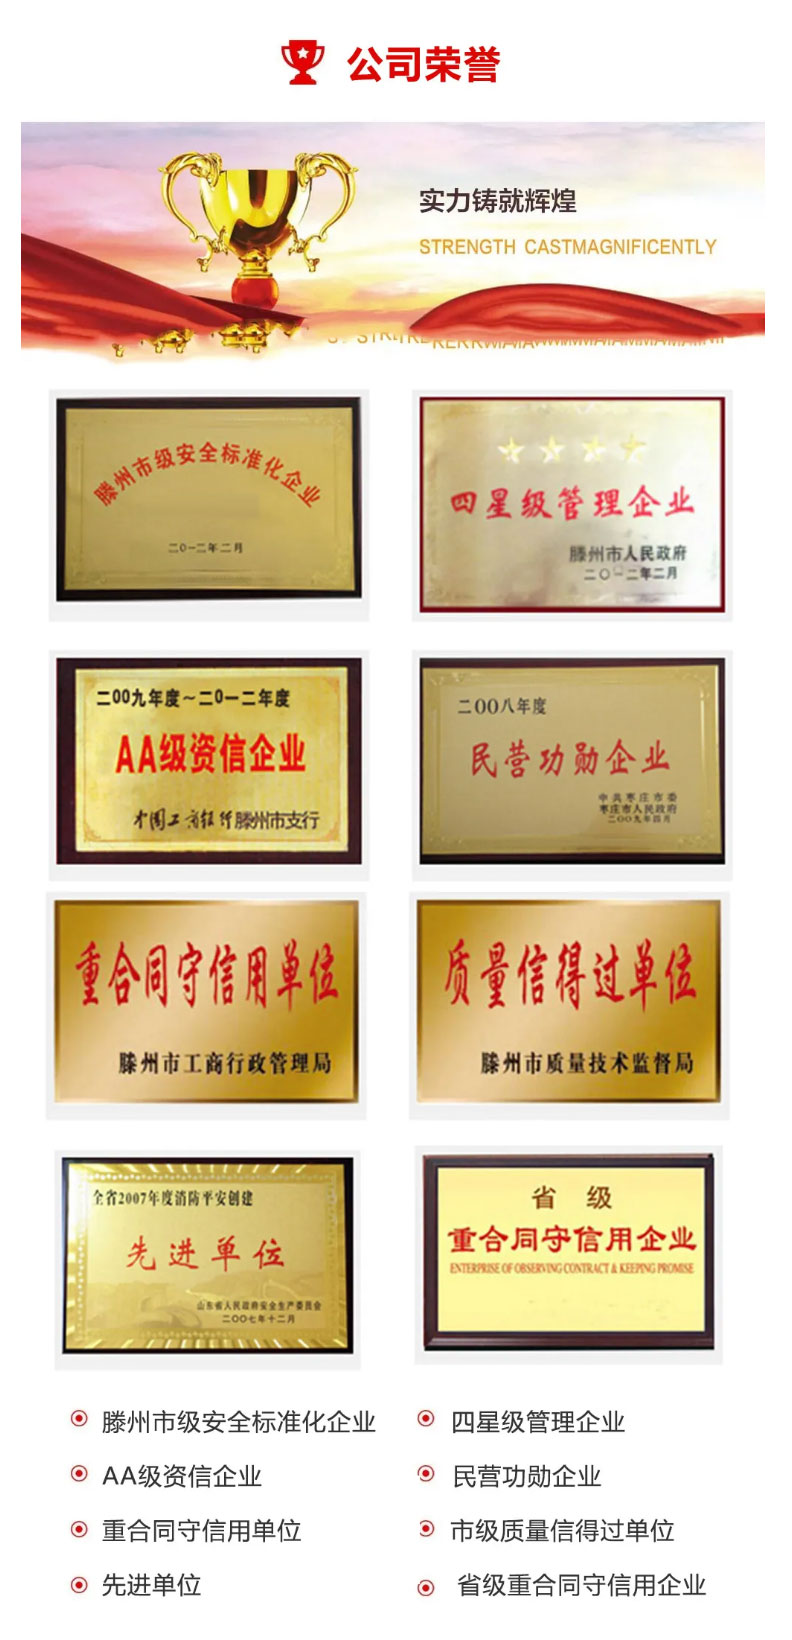 公司荣誉
实力铸就辉煌
STRENGTH CASTMAGNIFICENTLY
滕州市级安全标准化企业
二0一二年二月
四星级管理企业
滕州市人民政府
二〇一二年二月
二00九年度～二0一二年度
AA级资信企业
中国工商银行滕州市支行
二00八年度
民营功勋企业
中共枣庄市委
枣庄市人民政府
二〇〇九年四月
重合同守信用单位
滕州市工商行政管理局
质量信得过单位
滕州市质量技术监督局
全省2007年度消防平安创建
先进单位
山东省人民政府安全生产委员会
二〇〇七年十二月
省 级
重合同守信用企业
ENTERPRISE OF OBSERVING CONTRACT & KEEPING PROMISE
滕州市级安全标准化企业
四星级管理企业
AA级资信企业
民营功勋企业
重合同守信用单位
市级质量信得过单位
先进单位
省级重合同守信用企业